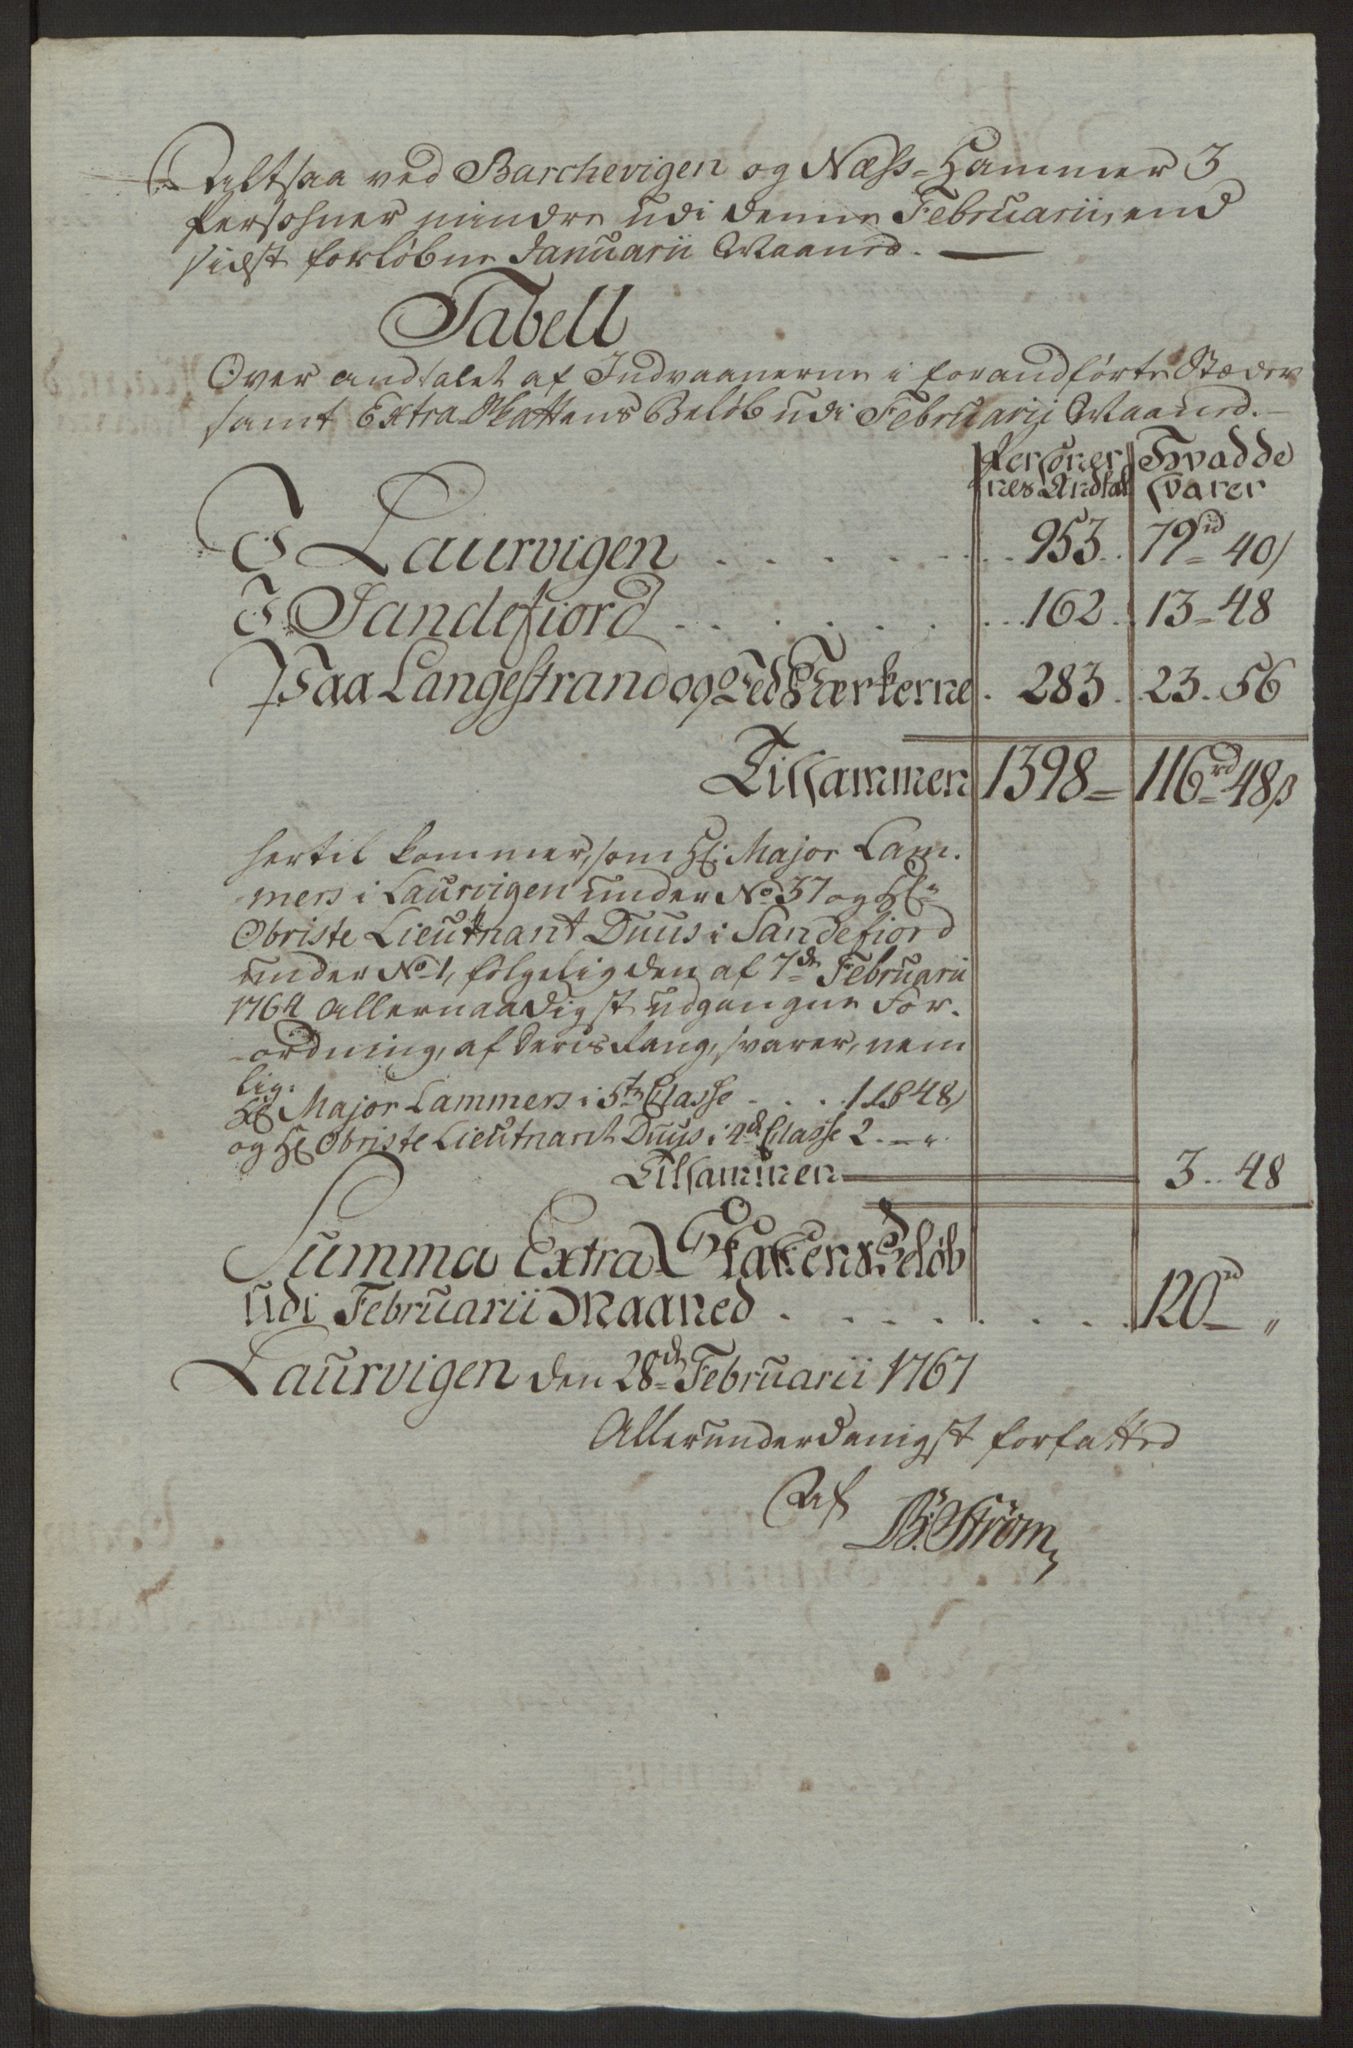 Altsaa ved Barchevigen og Næss-Hammer 3
Persohner mindre udi denne Februarii, end
sidst forløbne Januarii Maaned.
Tabell
Over andtalet af Indvaanerne i forandførte Stæder
samt Extra Skattens Beløb udi Februarii Maaned.
Personer Hvadde
nes Andtal svarer
I Laurvigen . . . . . . . 953. 79rd 40/
I Sandefiord . . . . . . . 162. 13 - 48
Paa Langestrand og Ved Værkerne . 283. 23. 56
Tilsammen 1398 - 116rd 48ß
hertil kommer, som Hr: Major Lam-
mers i Laurvigen under No 37 og Hr:
Obriste Lieutnant Duus i Sandefiord
under No 1, følgelig den af 7de Februarii
1764 allernaadigst udgangne For-
ordning, af deris Rang, svarer, nem
lig:
Hr Major Lammers i 5te Classe . . . 1 rd 48/
og Hr Obriste Lieutnant Duus i 4de Classe 2. - "
Tilsammen 3.. 48
Summa Extra Skattens Beløb
udi Februarii Maaned . . . . . . . . 120rd "
Laurvigen den 28de Februarii 1767
Allerunderdanigst forfatted
Af B: Strøm